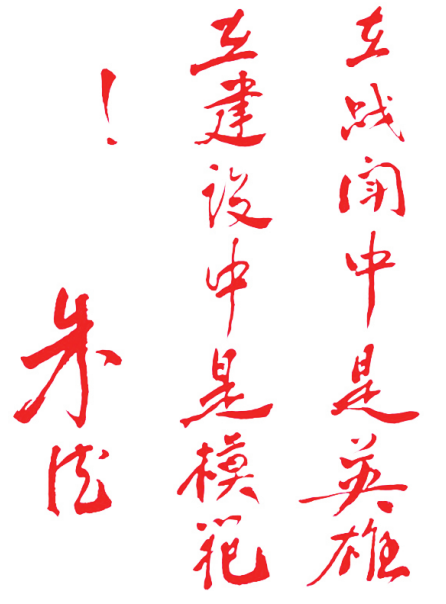 在战闘中是英雄
在建设中是模範
！
朱德